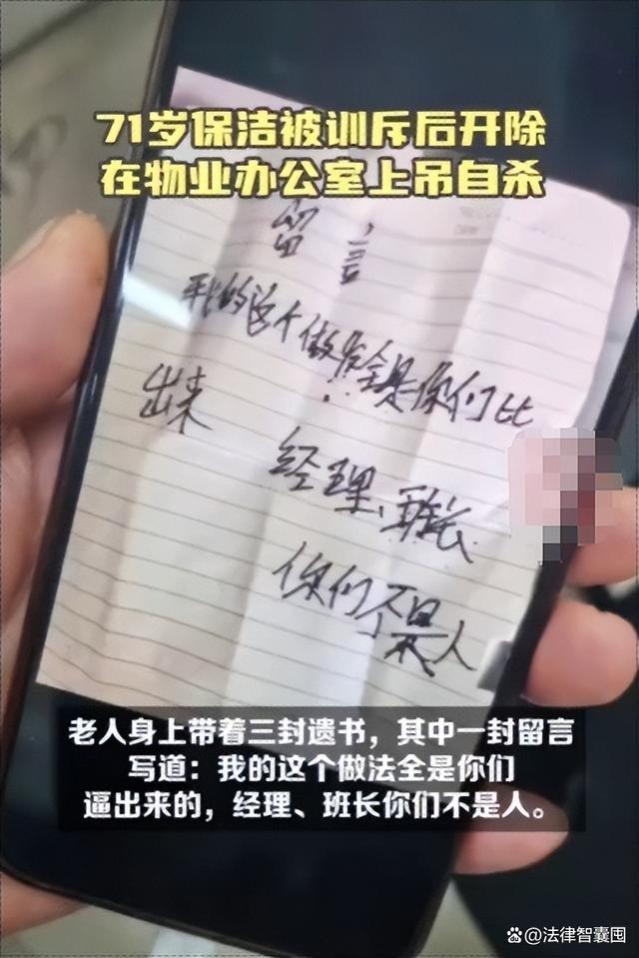 71岁保洁被训斥后开除
在物业办公室上吊自杀
留言
我的这个做法全是你们比
出来
经理、班长
你们不是人
老人身上带着三封遗书，其中一封留言
写道：我的这个做法全是你们
逼出来的，经理、班长你们不是人。
@法律智囊囤